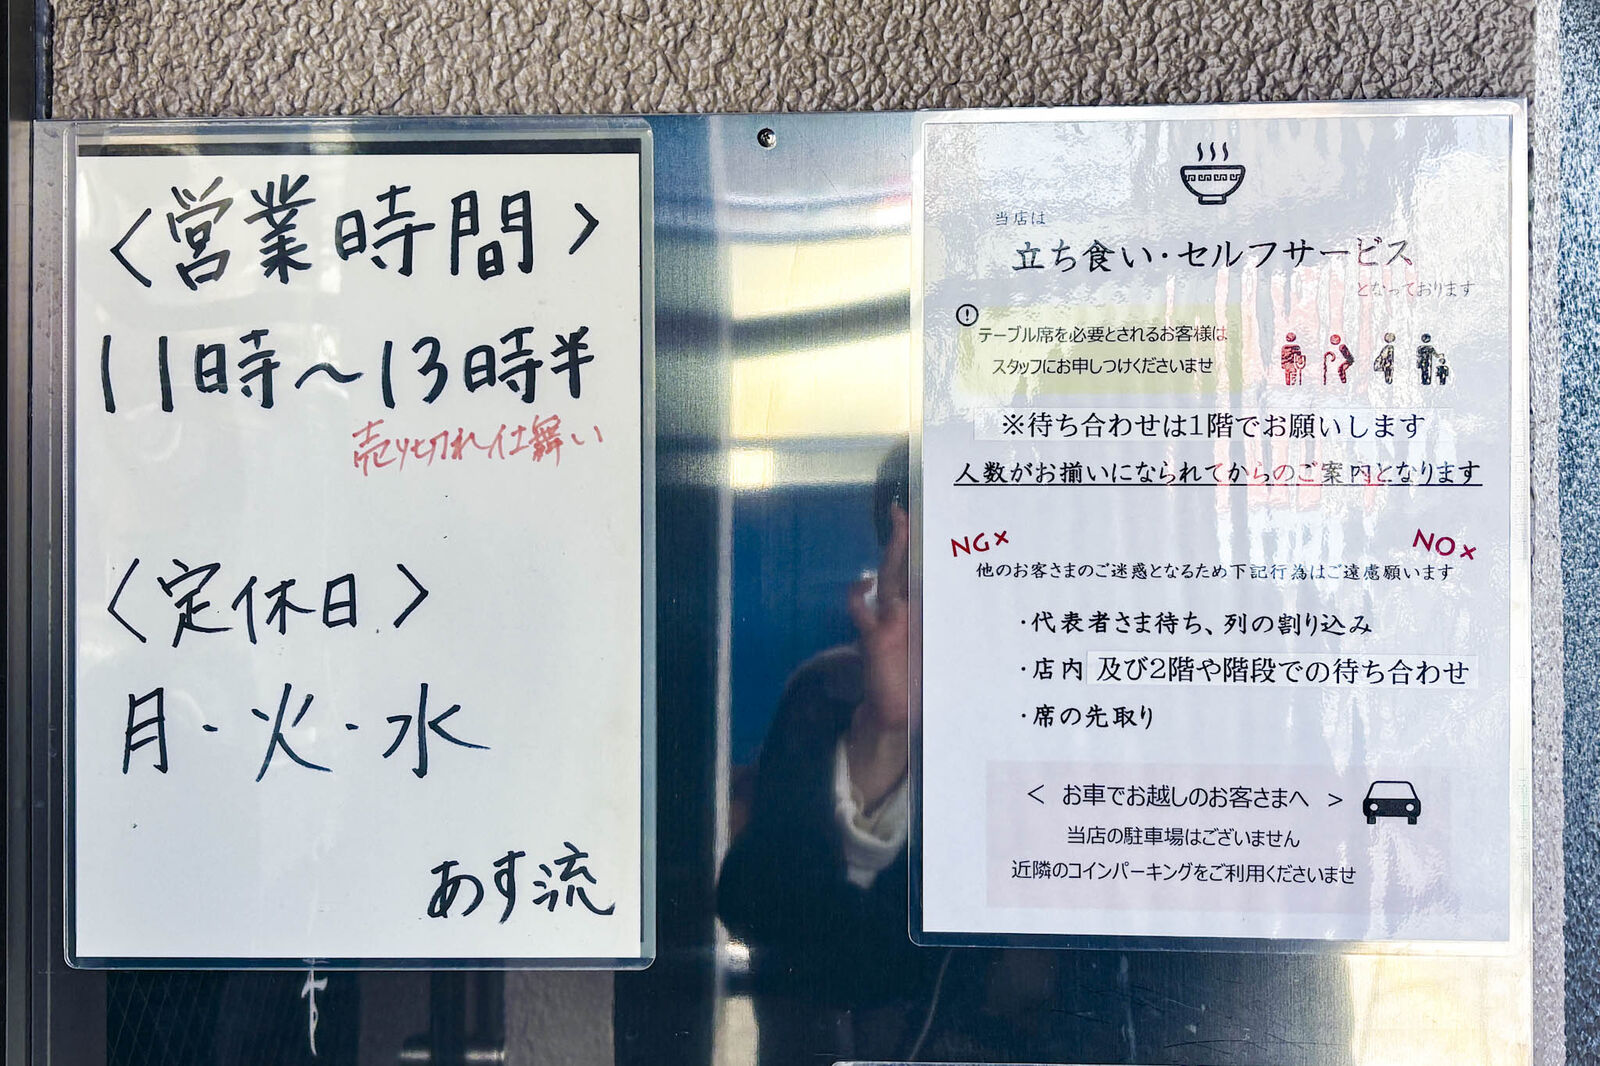 〈営業時間〉
11時〜13時半
売り切れ仕舞い
〈定休日〉
月・火・水
あす流
当店は
立ち食い・セルフサービス
となっております
テーブル席を必要とされるお客様は
スタッフにお申しつけくださいませ
※待ち合わせは1階でお願いします
人数がお揃いになられてからのご案内となります
NG×
NO×
他のお客さまのご迷惑となるため下記行為はご遠慮願います
・代表者さま待ち、列の割り込み
・店内 及び2階や階段での待ち合わせ
・席の先取り
＜ お車でお越しのお客さまへ ＞
当店の駐車場はございません
近隣のコインパーキングをご利用くださいませ